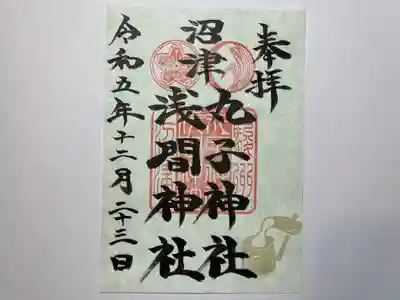 奉拝
沼津
丸子神社
浅間神社
令和五年十一月二十三日